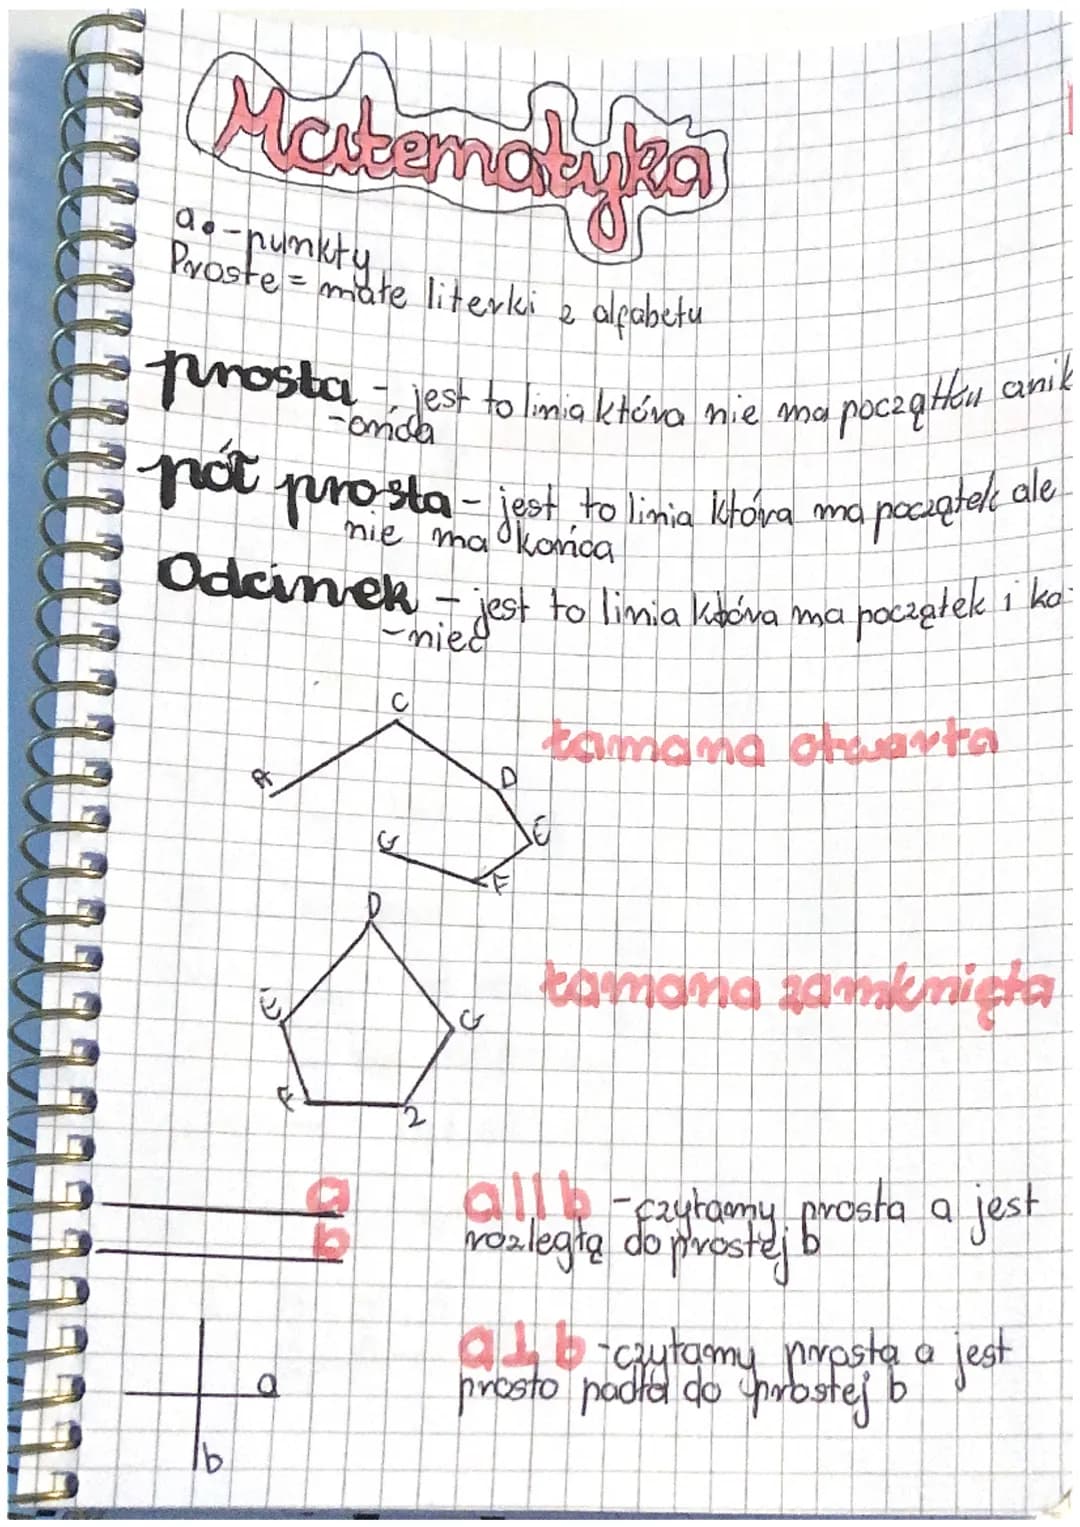 Matematyka
a. -punkty
Proste = małe literki z alfabetu
prosta - jest to linia która nie ma początku ani k
-ońca
pół prosta - jest to linia która ma początek ale
nie ma końca
Odcinek - jest to linia która ma początek i ko-
-niec
C
łamana otwarta
A
D
G
E
F
D
łamana zamknięta
E
G
F
2
a
a || b - czytamy prosta a jest
b
rozległą do prostej b
a ⊥ b - czytamy prosta a jest
a
prosto padła do prostej b
b